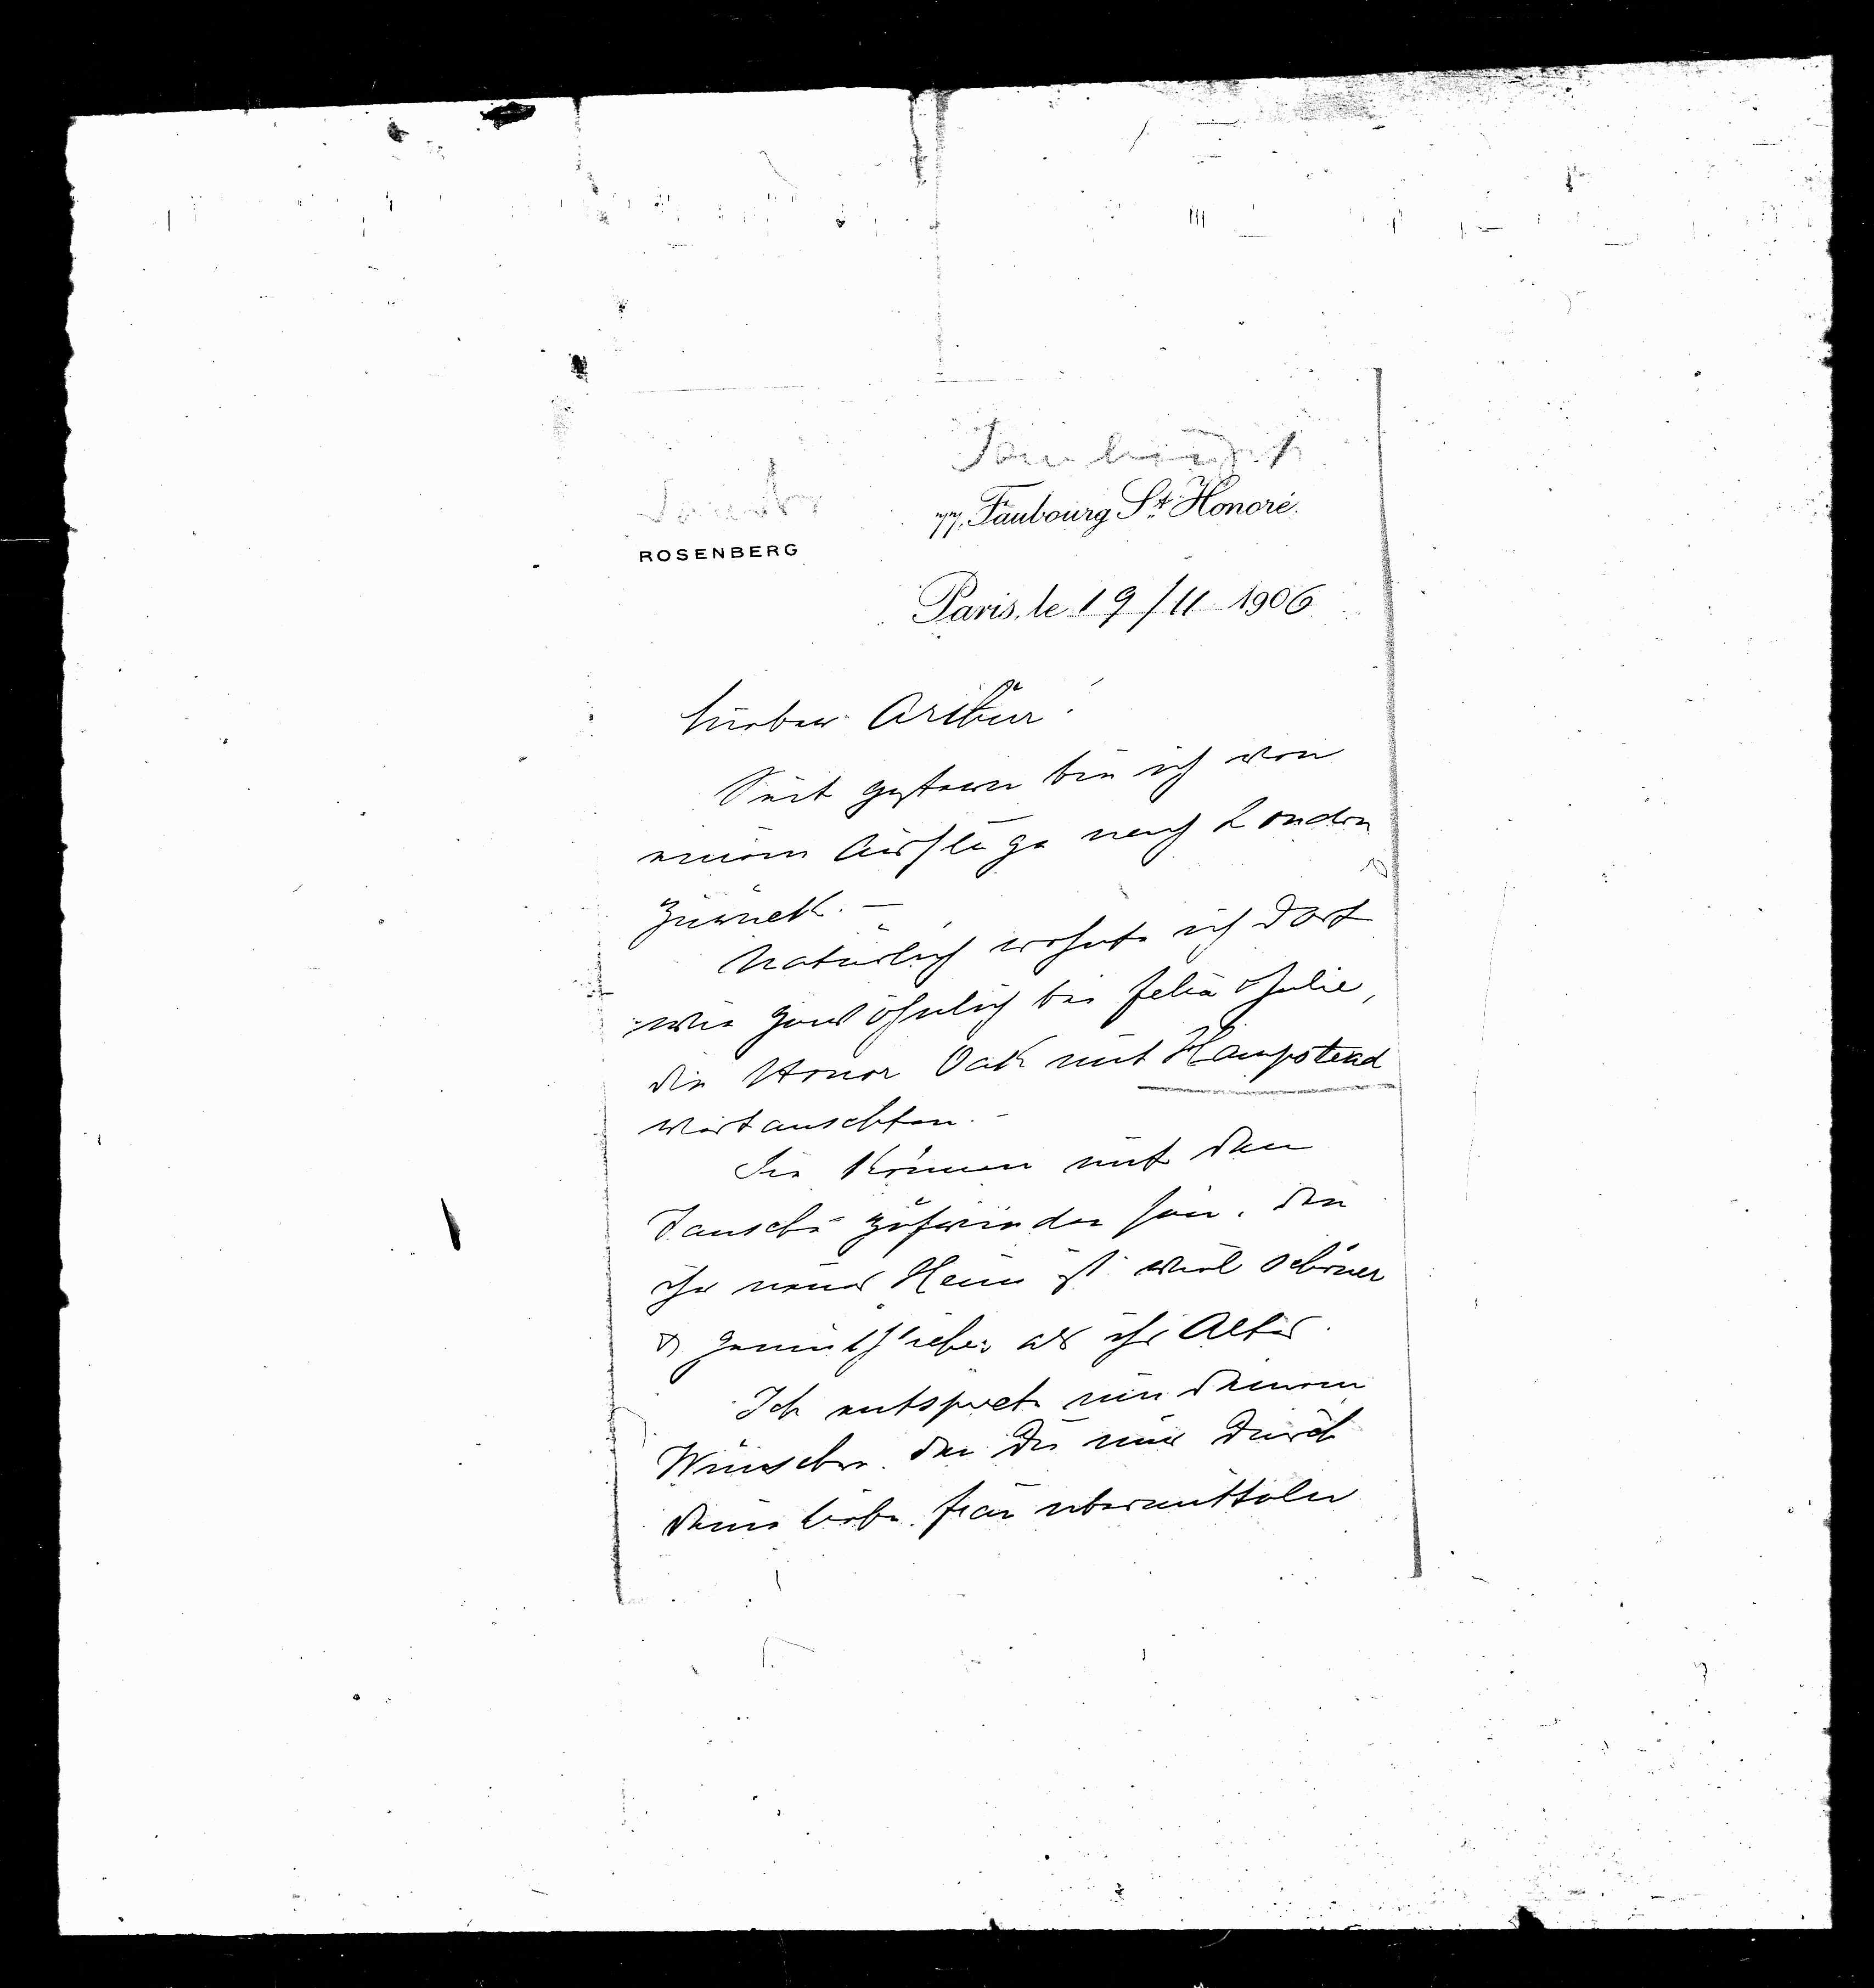 77, Faubourg St. Honoré.
ROSENBERG
Paris, le 19/11 1906
Lieber Artur!
Seit gestern bin ich von
einem Ausfluge nach London
zurück. —
Natürlich wohnte ich dort
wie gewöhnlich bei Felix & Julie,
die Honor Oak mit Hampstead
vertauschten. –
Sie können mit dem
Tausche zufrieden sein, denn
ihr neues Heim ist viel schöner
& gemüthlicher als ihr Altes.
Ich entspreche nun Deinem
Wunsche, den Du mir durch
Deine liebe Frau übermitteln